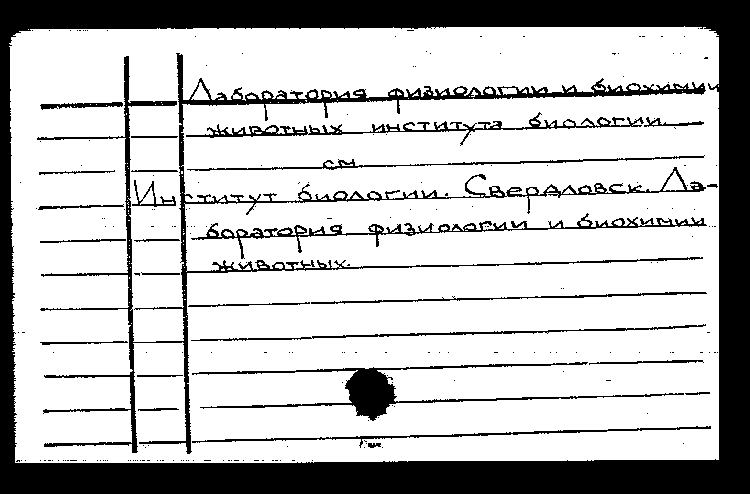 Лаборатория физиологии и биохимии
животных института биологии.
см.
Институт биологии. Свердловск. Ла-
боратория физиологии и биохимии
животных.